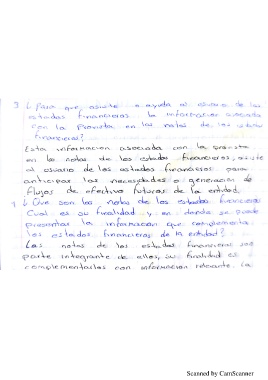 3 ¿Para que, asiste o ayuda al usuario de los
estados financieros la información asociada
con la Prevista en las notas de los estados
financieros?
Esta información asociada con la prevista
en la notas de los estados financieros, asiste
al usuario de los estados financieros para
anticipar las necesidades o generación de
flujos de efectivo futuros de la entidad.
¿Que son las notas de los estados financieros
Cual es su finalidad y en donde se puede
presentar la información que complementa
los estados financieros de la entidad?
Las notas de los estados financieros son
parte integrante de ellos, su finalidad es
complementarlos con información relevante. La
Scanned by CamScanner